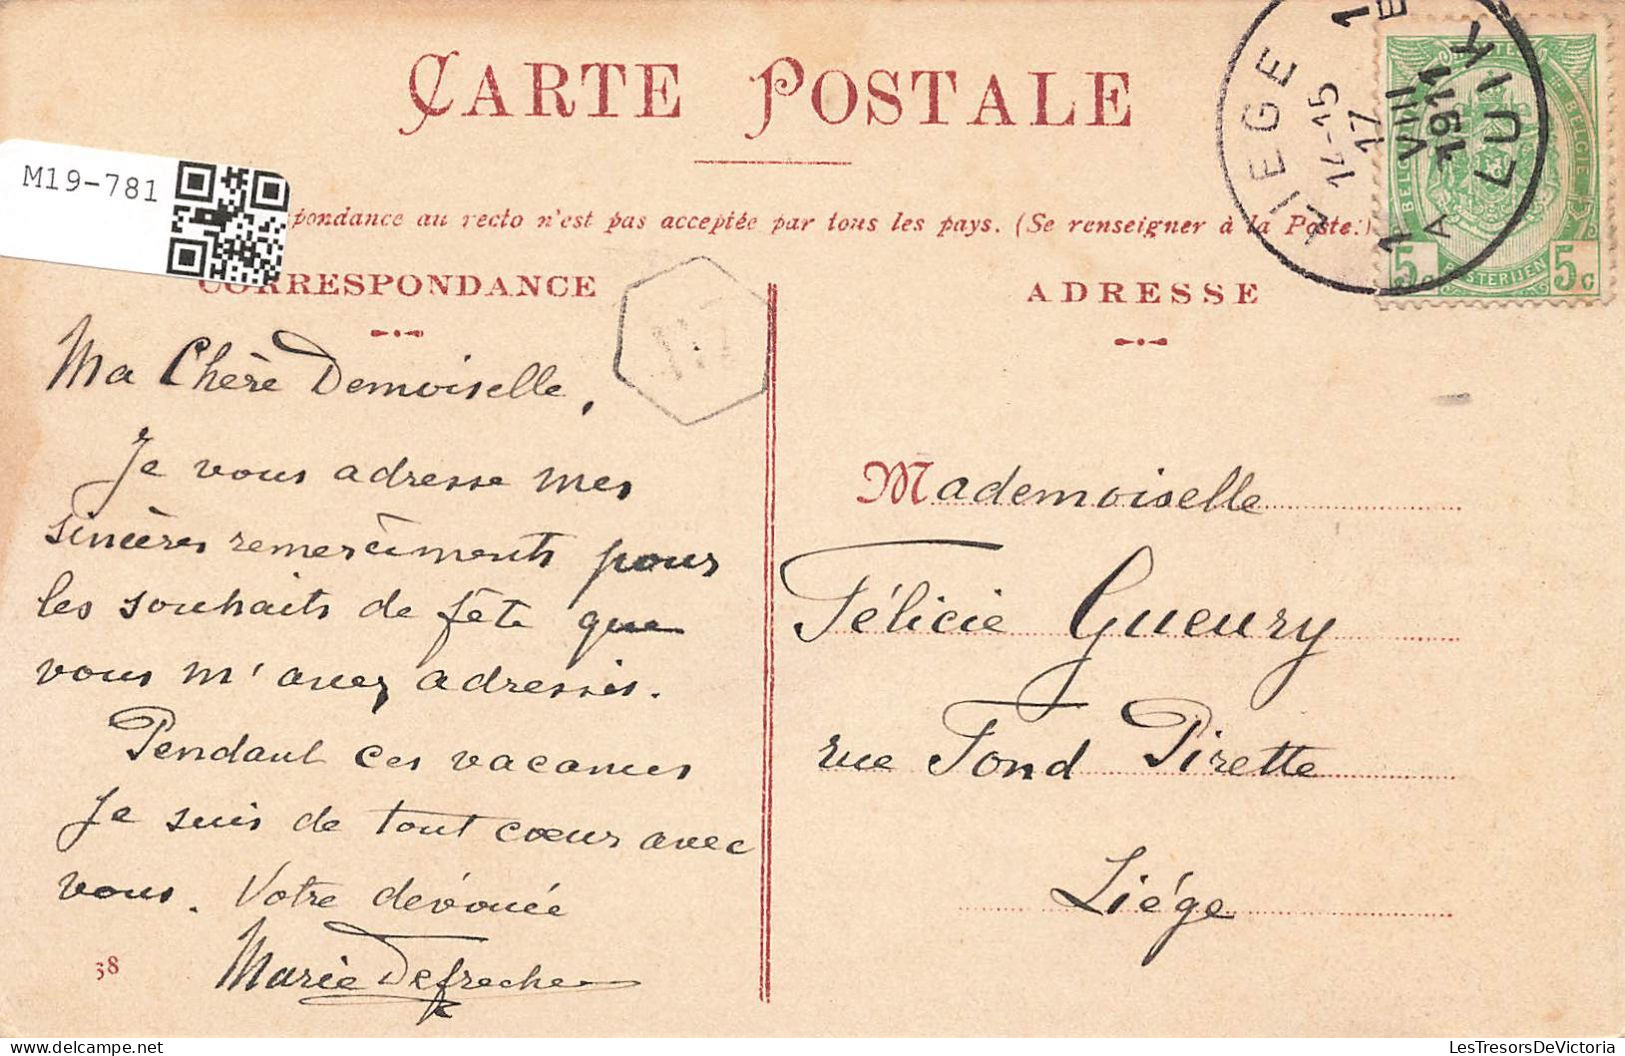 CARTE POSTALE
M19-781
pondance au recto n'est pas acceptée par tous les pays. (Se renseigner à la Poste.)
CORRESPONDANCE
ADRESSE
LIEGE 1
LUIK 1
14-15
17
VIII
1911
A
BELGIE
POSTERIJEN
5c 5c
117
Ma Chère Demoiselle,
Je vous adresse mes
sincères remerciments pour
les souhaits de fête que
vous m'avez adressés.
Pendant ces vacances
Je suis de tout cœur avec
vous. Votre dévouée
Marie Defrecheux
38
Mademoiselle
Félicie Gueury
rue Fond Pirette
Liége
LesTresorsDeVictoria